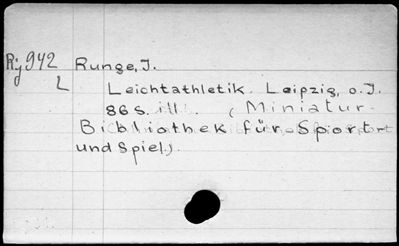 Rj 942 Runge, J.
L
Leichtathletik. Leipzig, o. J.
86 S. ill. (Miniatur-
Bibliothek für Sport
und Spiel).